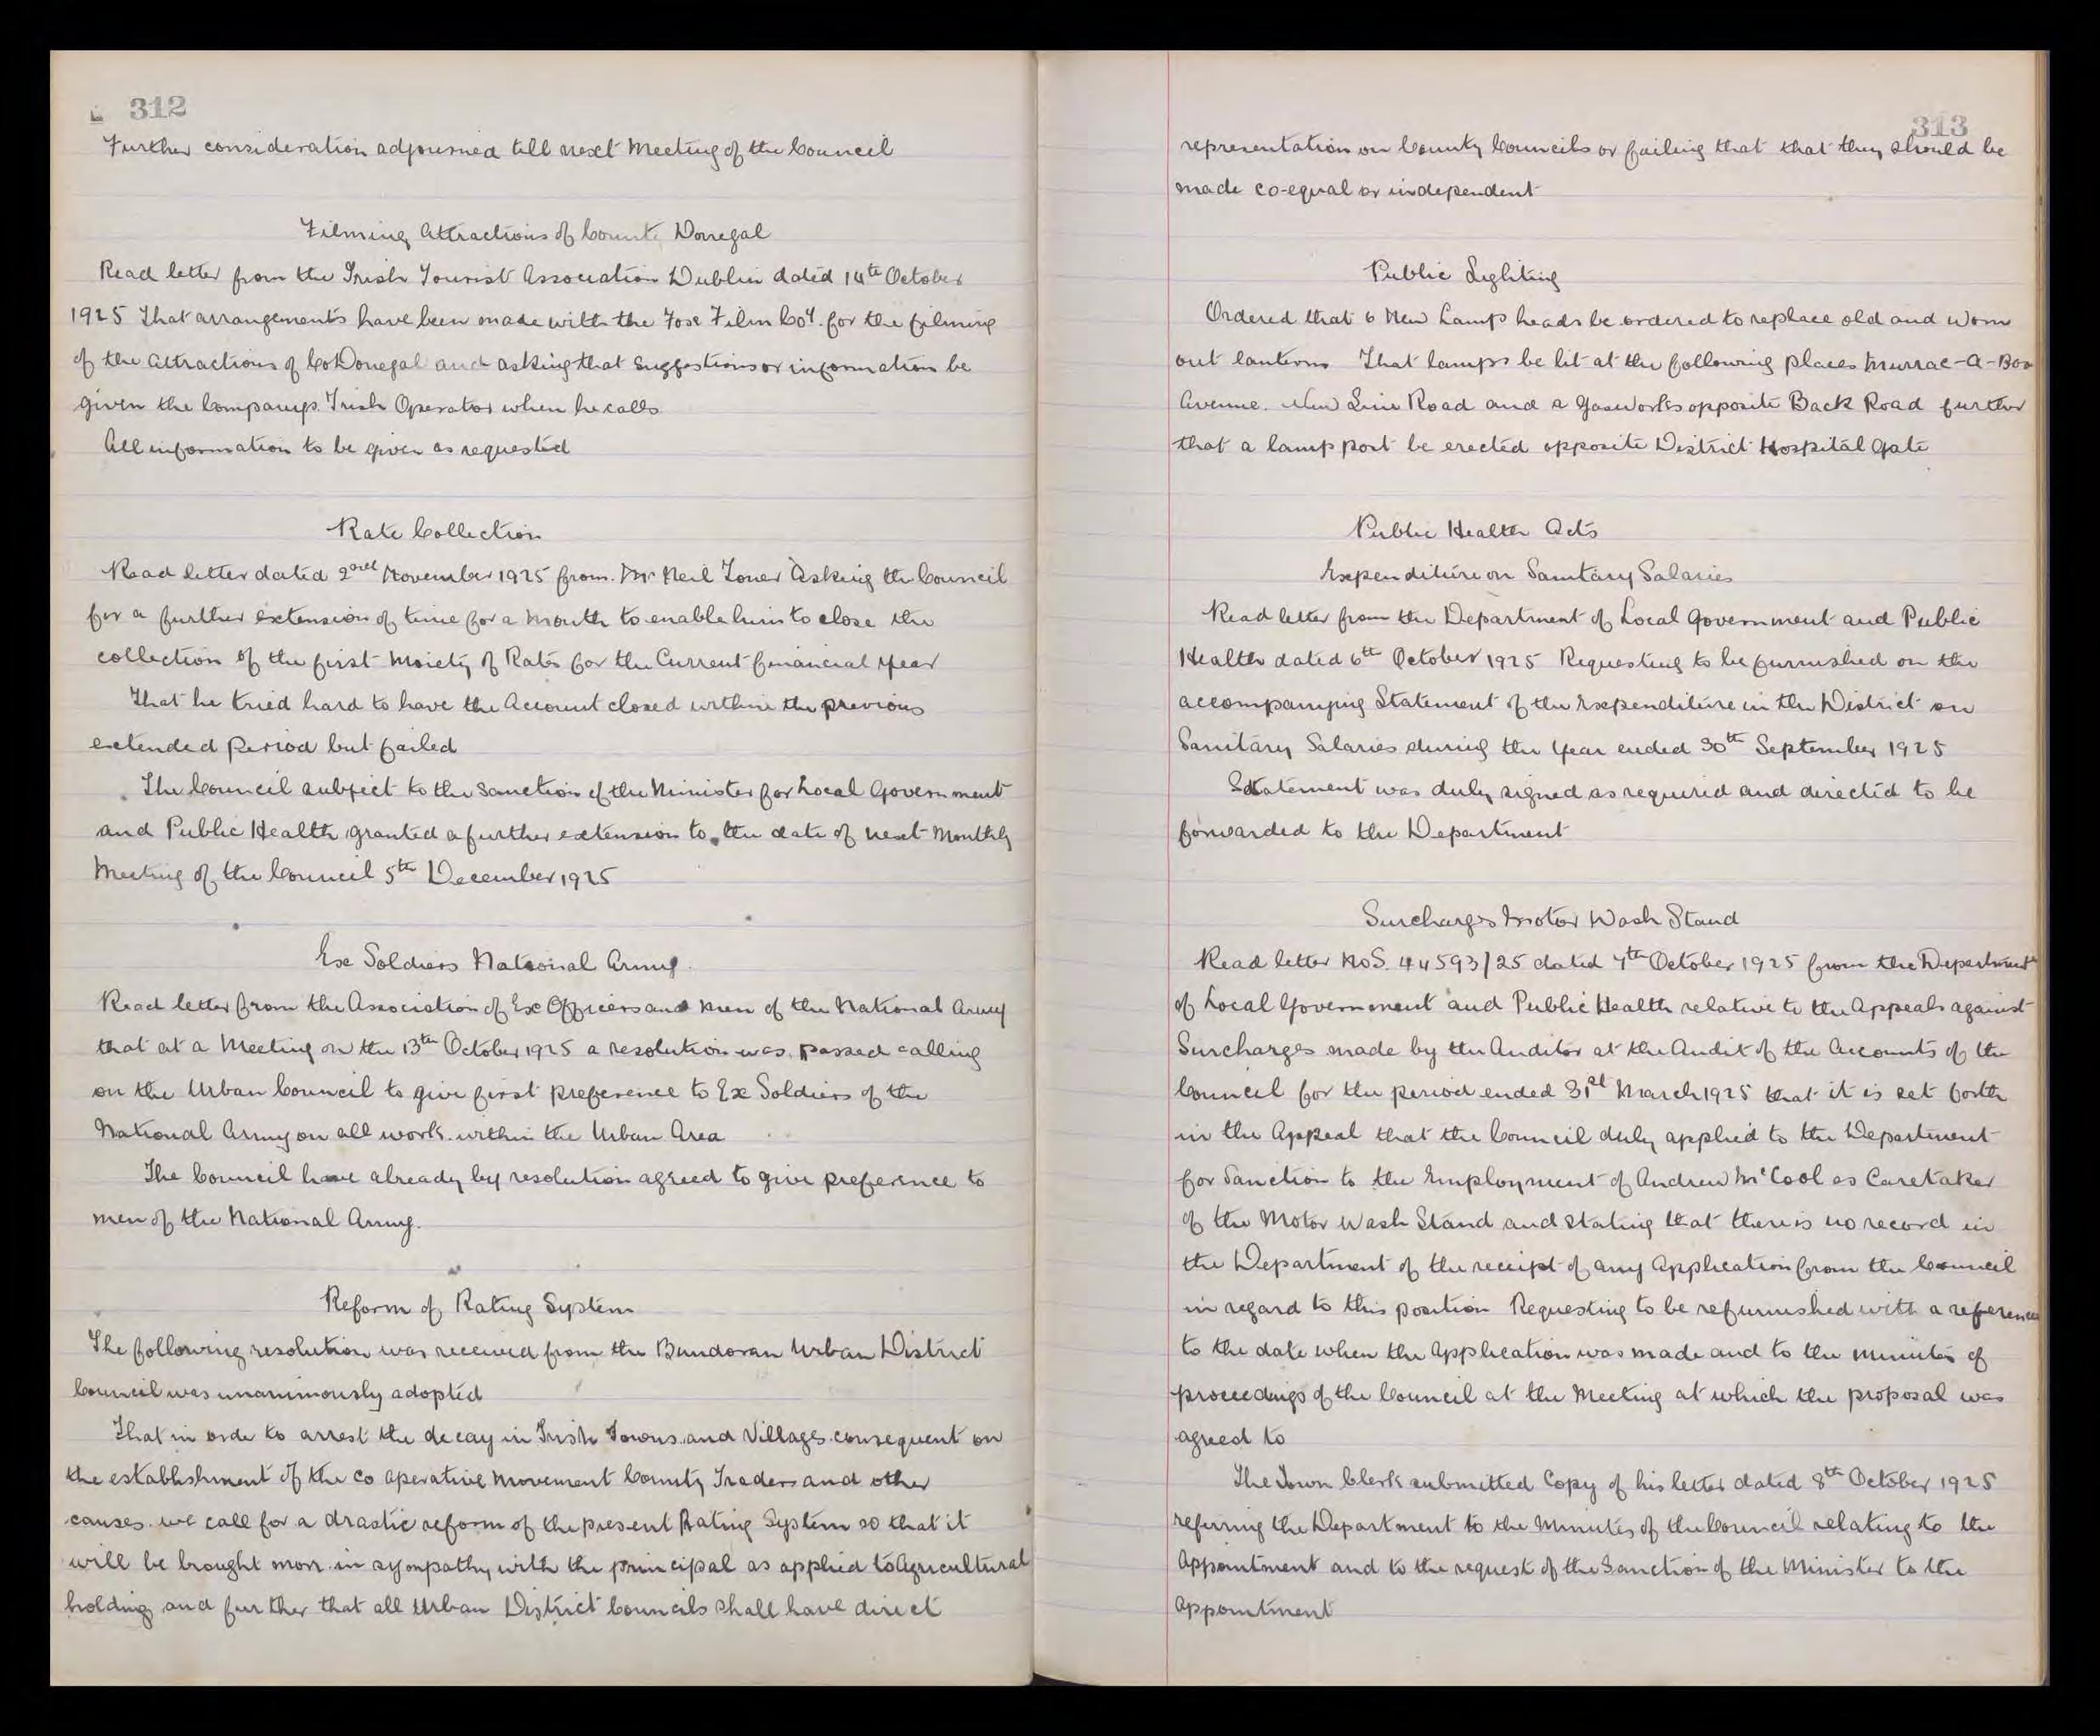 312
Further consideration adjourned till next Meeting of the Council
Filming Attractions of County Donegal
Read letter from the Irish Tourist Association Dublin dated 14th October
1925 That arrangements have been made with the Fox Film Coy. for the filming
of the Attractions of Co Donegal and asking that suggestions or information be
given the Companys Irish Operator when he calls
All information to be given as requested
Rate Collection
Read letter dated 2nd November 1925 from Mr Neil Toner Asking the Council
for a further extension of time for a Month to enable him to close the
collection of the first Moiety of Rates for the Current financial year
That he tried hard to have the Account closed within the previous
extended period but failed
The Council subject to the Sanction of the Minister for Local Government
and Public Health granted a further extension to the date of next Monthly
Meeting of the Council 5th December 1925
Ex Soldiers National Army
Read letter from the Association of Ex Officers and men of the National Army
that at a Meeting on the 13th October 1925 a resolution was passed calling
on the Urban Council to give first preference to Ex Soldiers of the
National Army on all work within the Urban Area
The Council have already by resolution agreed to give preference to
men of the National Army.
Reform of Rating System
The following resolution was received from the Bundoran Urban District
Council was unanimously adopted
That in orde to arrest the decay in Irish Towns and Villages consequent on
the establishment of the Co Operative Movement County Traders and other
causes we call for a drastic reform of the present Rating System so that it
will be brought more in sympathy with the principal as applied to Agricultural
holding and further that all Urban District Councils shall have direct
313
representation on County Councils or failing that that they should be
made co-equal or independent
Public Lighting
Ordered that 6 New Lamp heads be ordered to replace old and worn
out lanterns That lamps be lit at the following places Murrac-A-Boo
Avenue. New Line Road and a Gasworks opposite Back Road further
that a lamp post be erected opposite District Hospital Gate
Public Health Acts
Expenditure on Sanitary Salaries
Read letter from the Department of Local Government and Public
Health dated 6th October 1925 Requesting to be furnished on the
accompanying Statement of the Expenditure in the District on
Sanitary Salaries during the Year ended 30th September 1925
Statement was duly signed as required and directed to be
forwarded to the Department
Surcharges Motor Wash Stand
Read letter No S. 44593/25 dated 7th October 1925 from the Department
of Local Government and Public Health relative to the Appeals against
Surcharges made by the Auditor at the Audit of the Accounts of the
Council for the period ended 31st March 1925 that it is set forth
in the Appeal that the Council duly applied to the Department
for Sanction to the Employment of Andrew McCool as Caretaker
of the Motor Wash Stand and stating that there is no record in
the Department of the receipt of any Application from the Council
in regard to this position Requesting to be refurnished with a reference
to the date when the Application was made and to the minutes of
proceedings of the Council at the Meeting at which the proposal was
agreed to
The Town Clerk submitted Copy of his letter dated 8th October 1925
referring the Department to the Minutes of the Council relating to the
Appointment and to the request of the Sanction of the Minister to the
Appointment